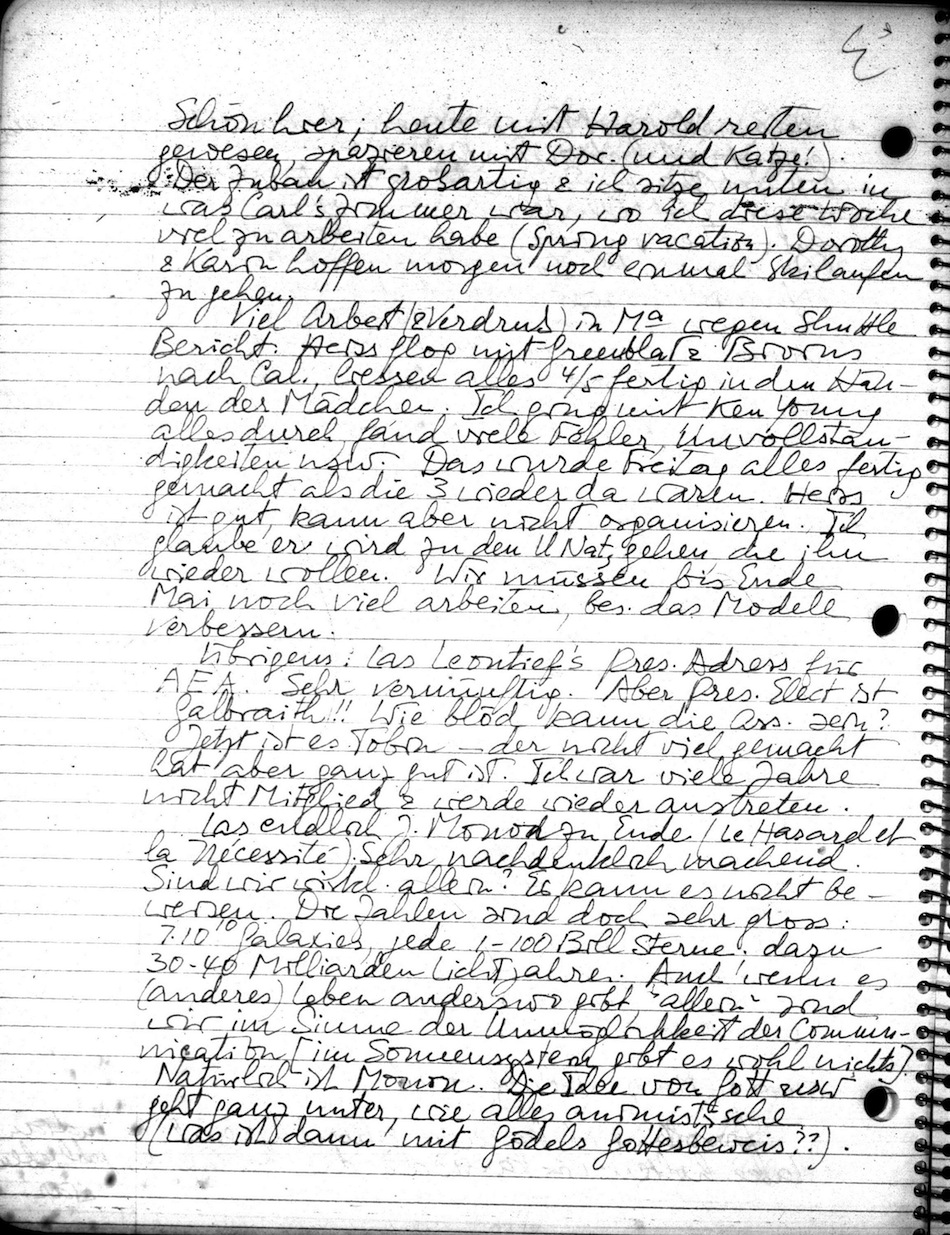 Schön hier; heute mit Harold reiten
gewesen, spazieren mit Doc. (und Katze!).
Der Zubau ist großartig & ich sitze unten in
was Carl's Zimmer war, wo ich diese Woche
viel zu arbeiten habe (Spring vacation). Dorothy
& Karin hoffen morgen noch einmal Skilaufen
zu gehen.
Viel Arbeit (& Verdruß) in Ma wegen Shuttle
Bericht. Heiss flog mit Greenblat & Browns
nach Cal., liessen alles 4/5 fertig in den Hän-
den der Mädchen. Ich ging mit Ken Young
alles durch, fand viele Fehler, Unvollstän-
digkeiten usw. Das wurde Freitag alles fertig
gemacht als die 3 wieder da waren. Heiss
ist gut, kann aber nicht organisieren. Ich
glaube er wird zu den U Nat. gehen die ihn
wieder wollen. Wir müssen bis Ende
Mai noch viel arbeiten, bes. das Modell
verbessern.
Übrigens: Las Leontief's Pres. Adress für
A.E.A. Sehr vernünftig. Aber Pres. Elect ist
Galbraith!! Wie blöd kann die Ass. sein?
Jetzt ist es Tobin – der nicht viel gemacht
hat aber ganz gut ist. Ich war viele Jahre
nicht Mitglied & werde wieder austreten.
Las endlich J. Monod zu Ende (Le Hasard et
la Nécessité). Sehr nachdenklich machend.
Sind wir wirkl. allein? Er kann es nicht be-
weisen. Die Zahlen sind doch sehr gross:
7.10¹⁰ Galaxies, jede 1-100 Bill Sterne; dazu
30-40 Milliarden Lichtjahre. Auch wenn es
(anderes) Leben anderswo gibt, "allein" sind
wir im Sinne der Unmöglichkeit der Commu-
nication [im Sonnensystem gibt es wohl nichts].
Natürlich ist Monon. Die Idee von Gott usw
geht ganz unter, wie alles animistische
(was ist dann mit Gödels Gottesbeweis??).